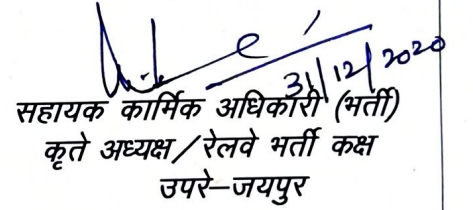 31/12/2020
सहायक कार्मिक अधिकारी (भर्ती)
कृते अध्यक्ष/रेलवे भर्ती कक्ष
उपरे–जयपुर